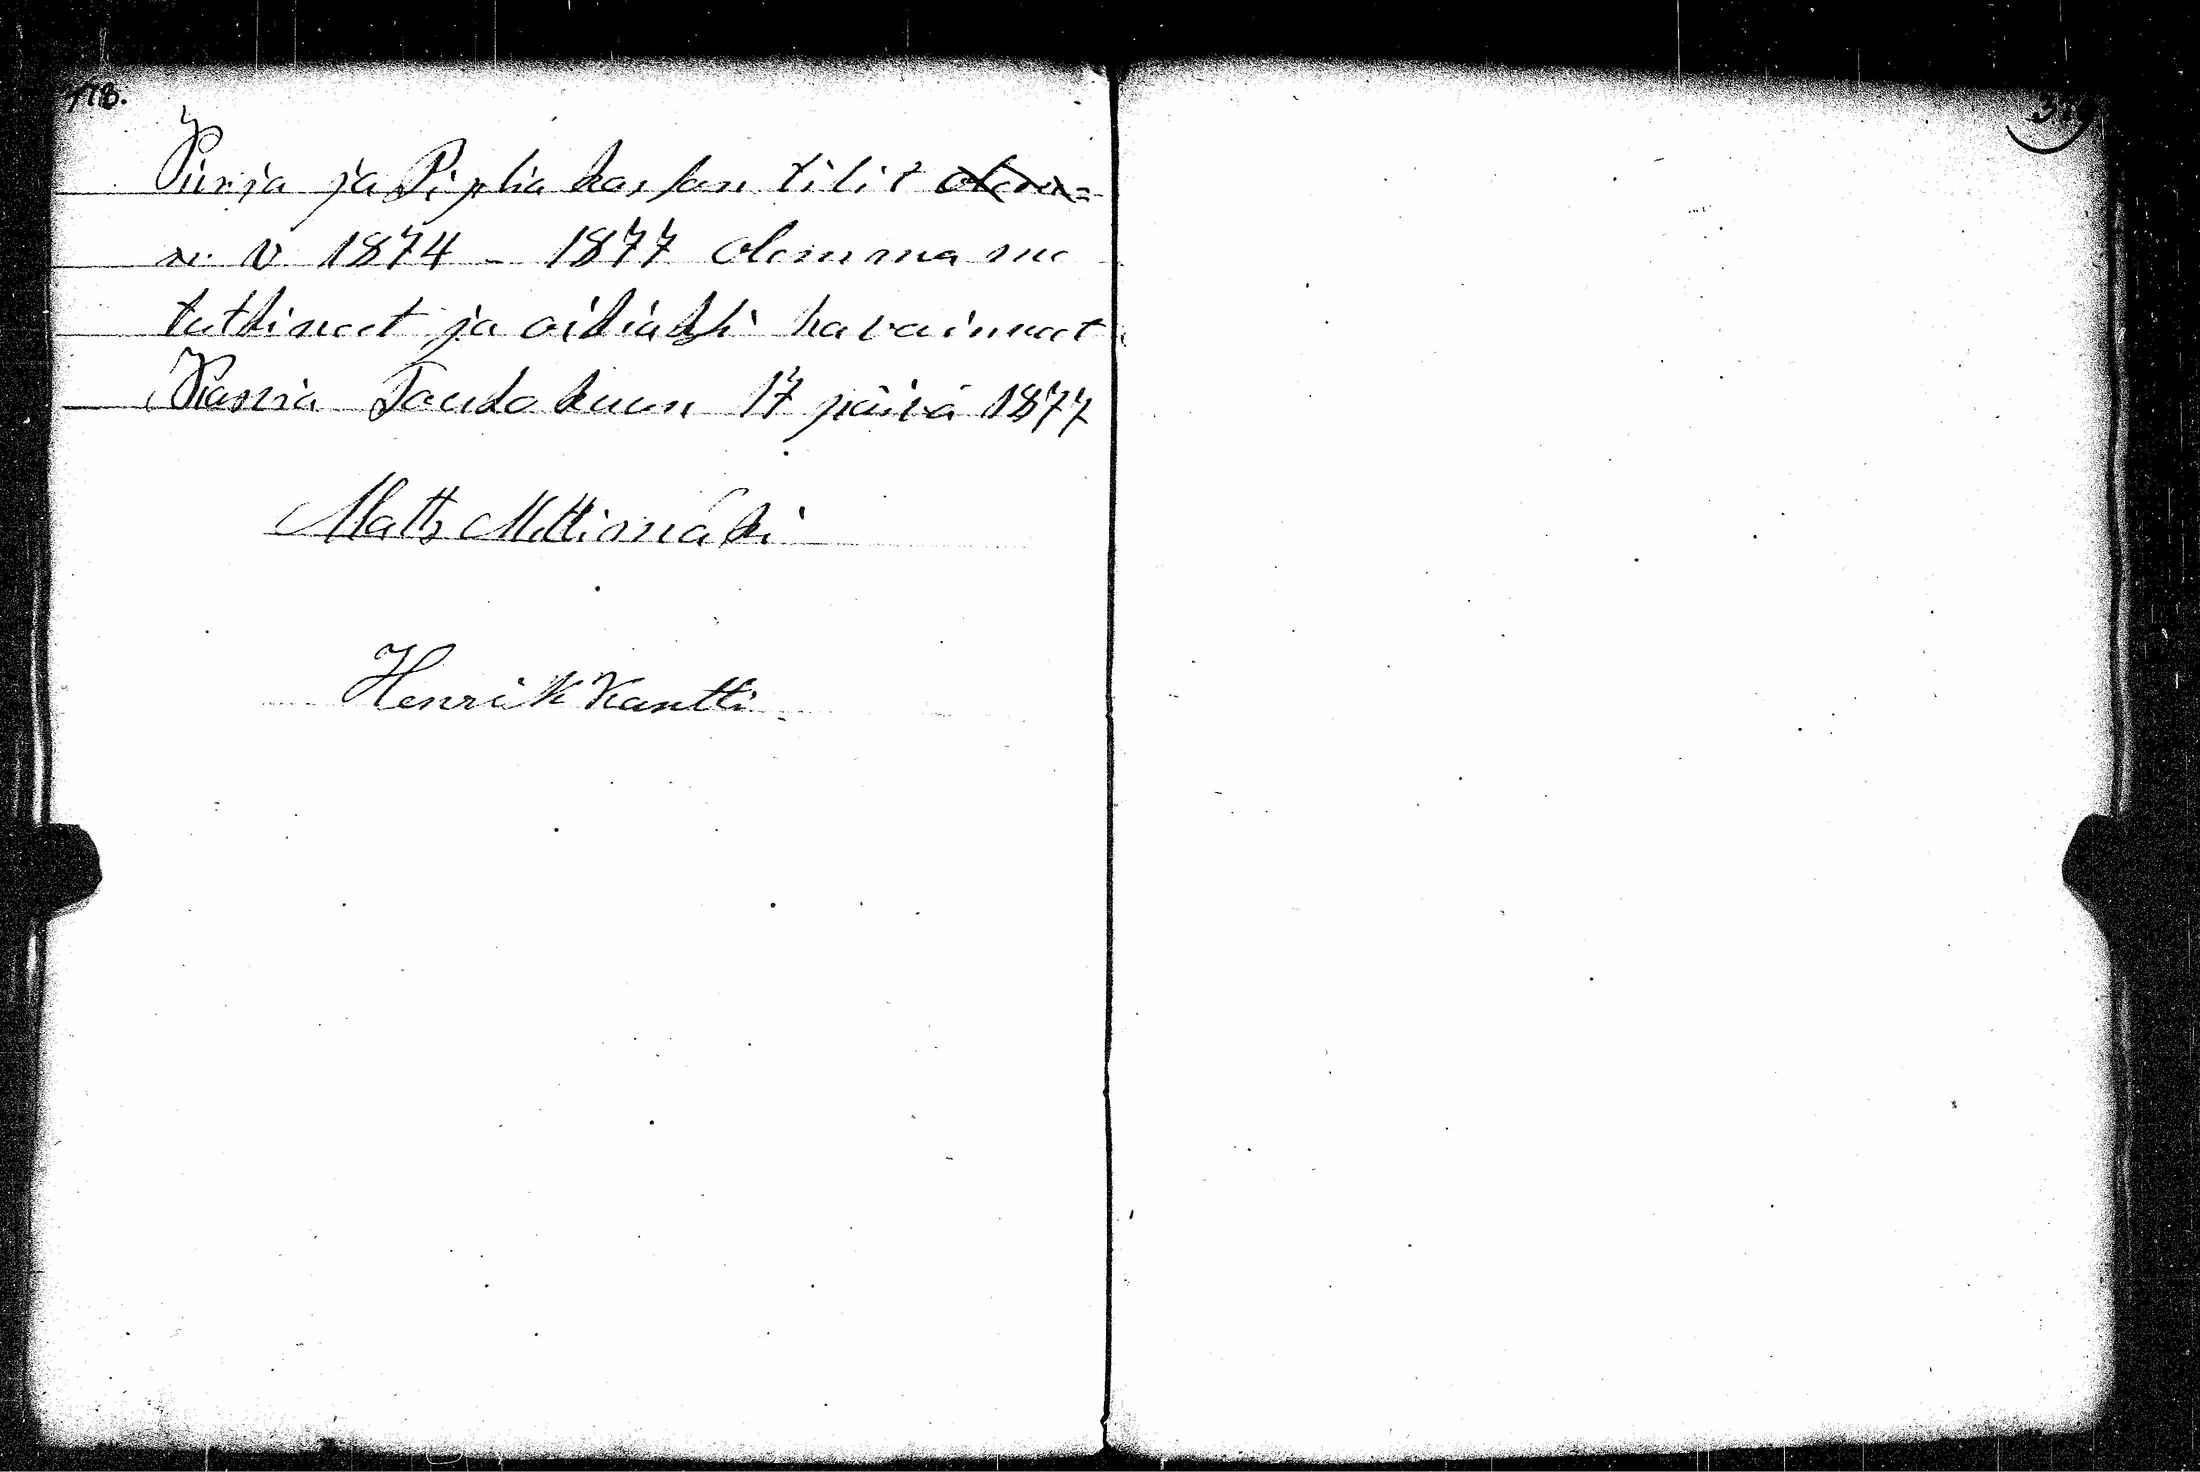 318.
319
Piiri ja Piplia kassan tilit olem=
me v 1874 - 1877 olemma me
tutkineet ja oikiaksi havainneet
Kasnia Toukokuun 17 päivä 1877
Matts Mattimäki
Henrik Kantti